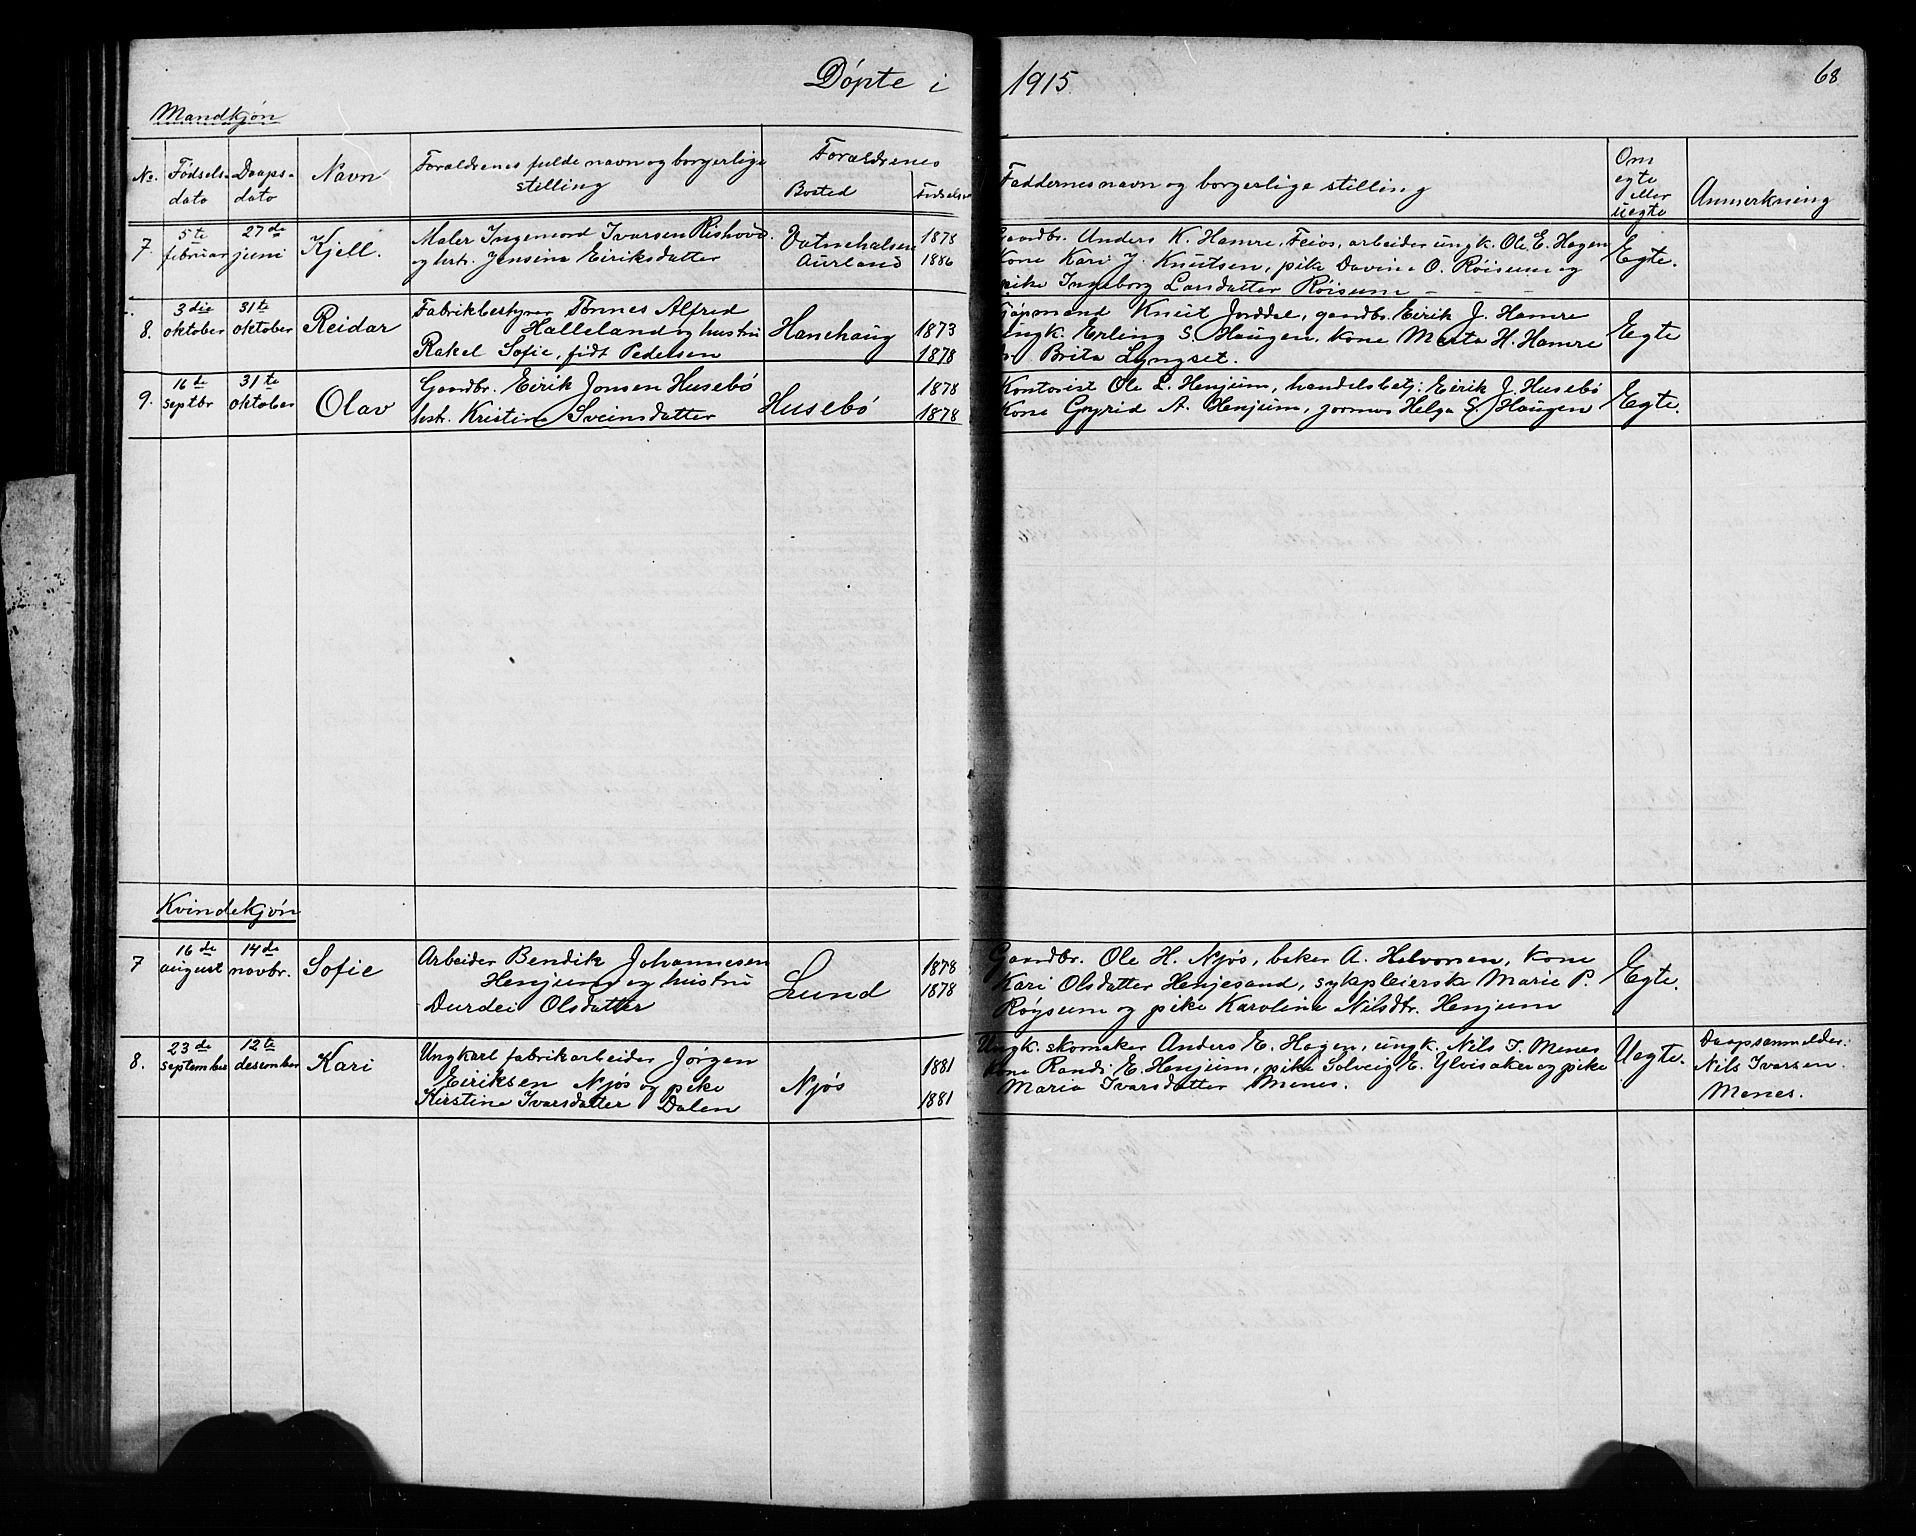 Döpte i 1915. 68
Mandkjön
No. Fødsels- dato Daaps- dato Navn Forældrenes fulde navn og borgerlige stilling Forældrenes Bosted Fødselsa Faddernes navn og borgerlige stilling Om egte eller uegte Anmerkning
7. 5te februar 27de juni Kjell. Maler Ingemord Ivarsen Rishovd. Vatnehalsen 1878 Gaardbr. Anders K. Hamre, Feios, arbeider ungk. Ole E. Hagen Egte.
og hstr. Jensine Eiriksdatter Aurland 1886 Kone Kari J. Knutsen, pike Davine O. Röisum og
pike Ingeborg Larsdatter Röisum - - -
8. 3die oktober 31te oktober Reidar Fabrikbestyrer Tönnes Alfred Knut Jorddal, gaardbr. Eirik J. Hamre
Halleland og hustru Hanehaug 1873 ungk. Erling S. Haugen, kone Marta H. Hamre Egte
Rakel Sofie, födt Pedersen 1878 Brita Lyngset.
9. 16de septbr 31te oktober Olav Gaardbr. Eirik Jonsen Husebö Husebö 1878 Kontorist Ole L. Henjum, handelsbetj. Eirik J. Husebö Egte.
hstr. Kristine Sveinsdatter 1878 Kone Gyrid A. Henjum, jormor Helga S. Haugen
Kvindekjön
7 16de august 14de novbr. Sofie Arbeider Bendik Johannesen 1878 Gaardbr. Ole H. Njös, baker A. Halvorsen, kone
Henjum og hustru Lund 1878 Kari Olsdatter Henjesand, sykepleierske Marie P. Egte.
Durdei Olsdatter Röysum og pike Karoline Nilsdtr. Henjum
8. 23de september 12te desember Kari Ungkarl fabrikarbeider Jörgen 1881 Ungk. skomaker Anders E. Hagen, ungk. Nils I. Menes Uegte. Daapsanmelder:
Eiriksen Njös og pike Njös kone Randi E. Henjum, pike Solveig E. Ylvisaker og pike Nils Ivarsen
Kirstine Ivarsdatter Dalen 1881 Maria Ivarsdatter Menes. Menes.